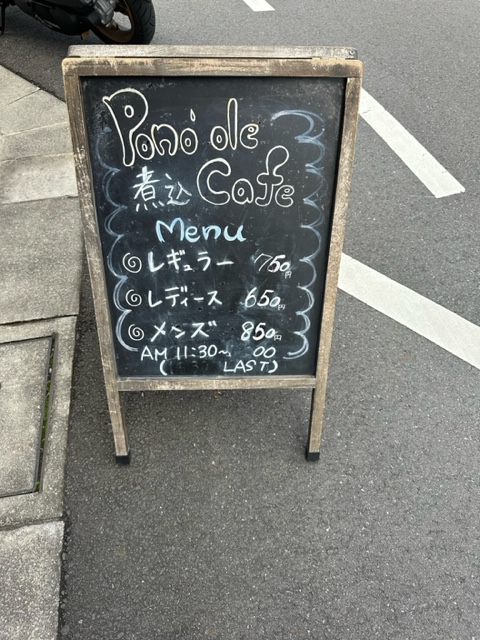 Pono de
煮込 Cafe
Menu
レギュラー 750円
レディース 650円
メンズ 850円
AM 11:30~ 00
( LAST)